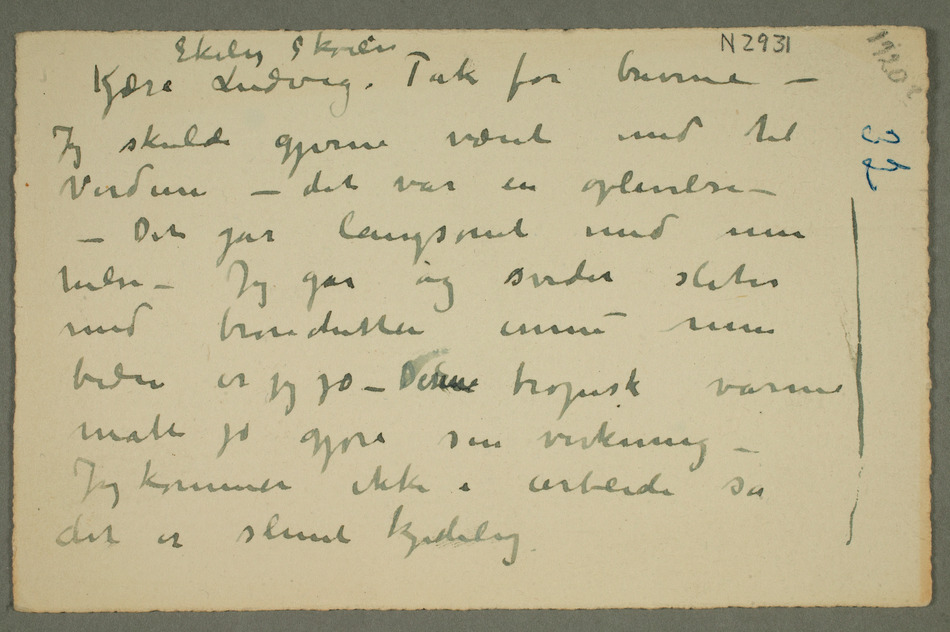 Ekely Skøien
N 2931
Kjære Ludvig. Tak for brevene –
Jeg skulde gjerne været med til
Verdun – det var en oplevelse –
– Det går langsomt med min
helse – Jeg går og sveder sliter
med bronchitten ennu men
bedre er jeg jo – Denne tropisk varme
måtte jo gjøre sin virkning –
Jeg kommer ikke i arbeide så
det er slemt kjedelig
32